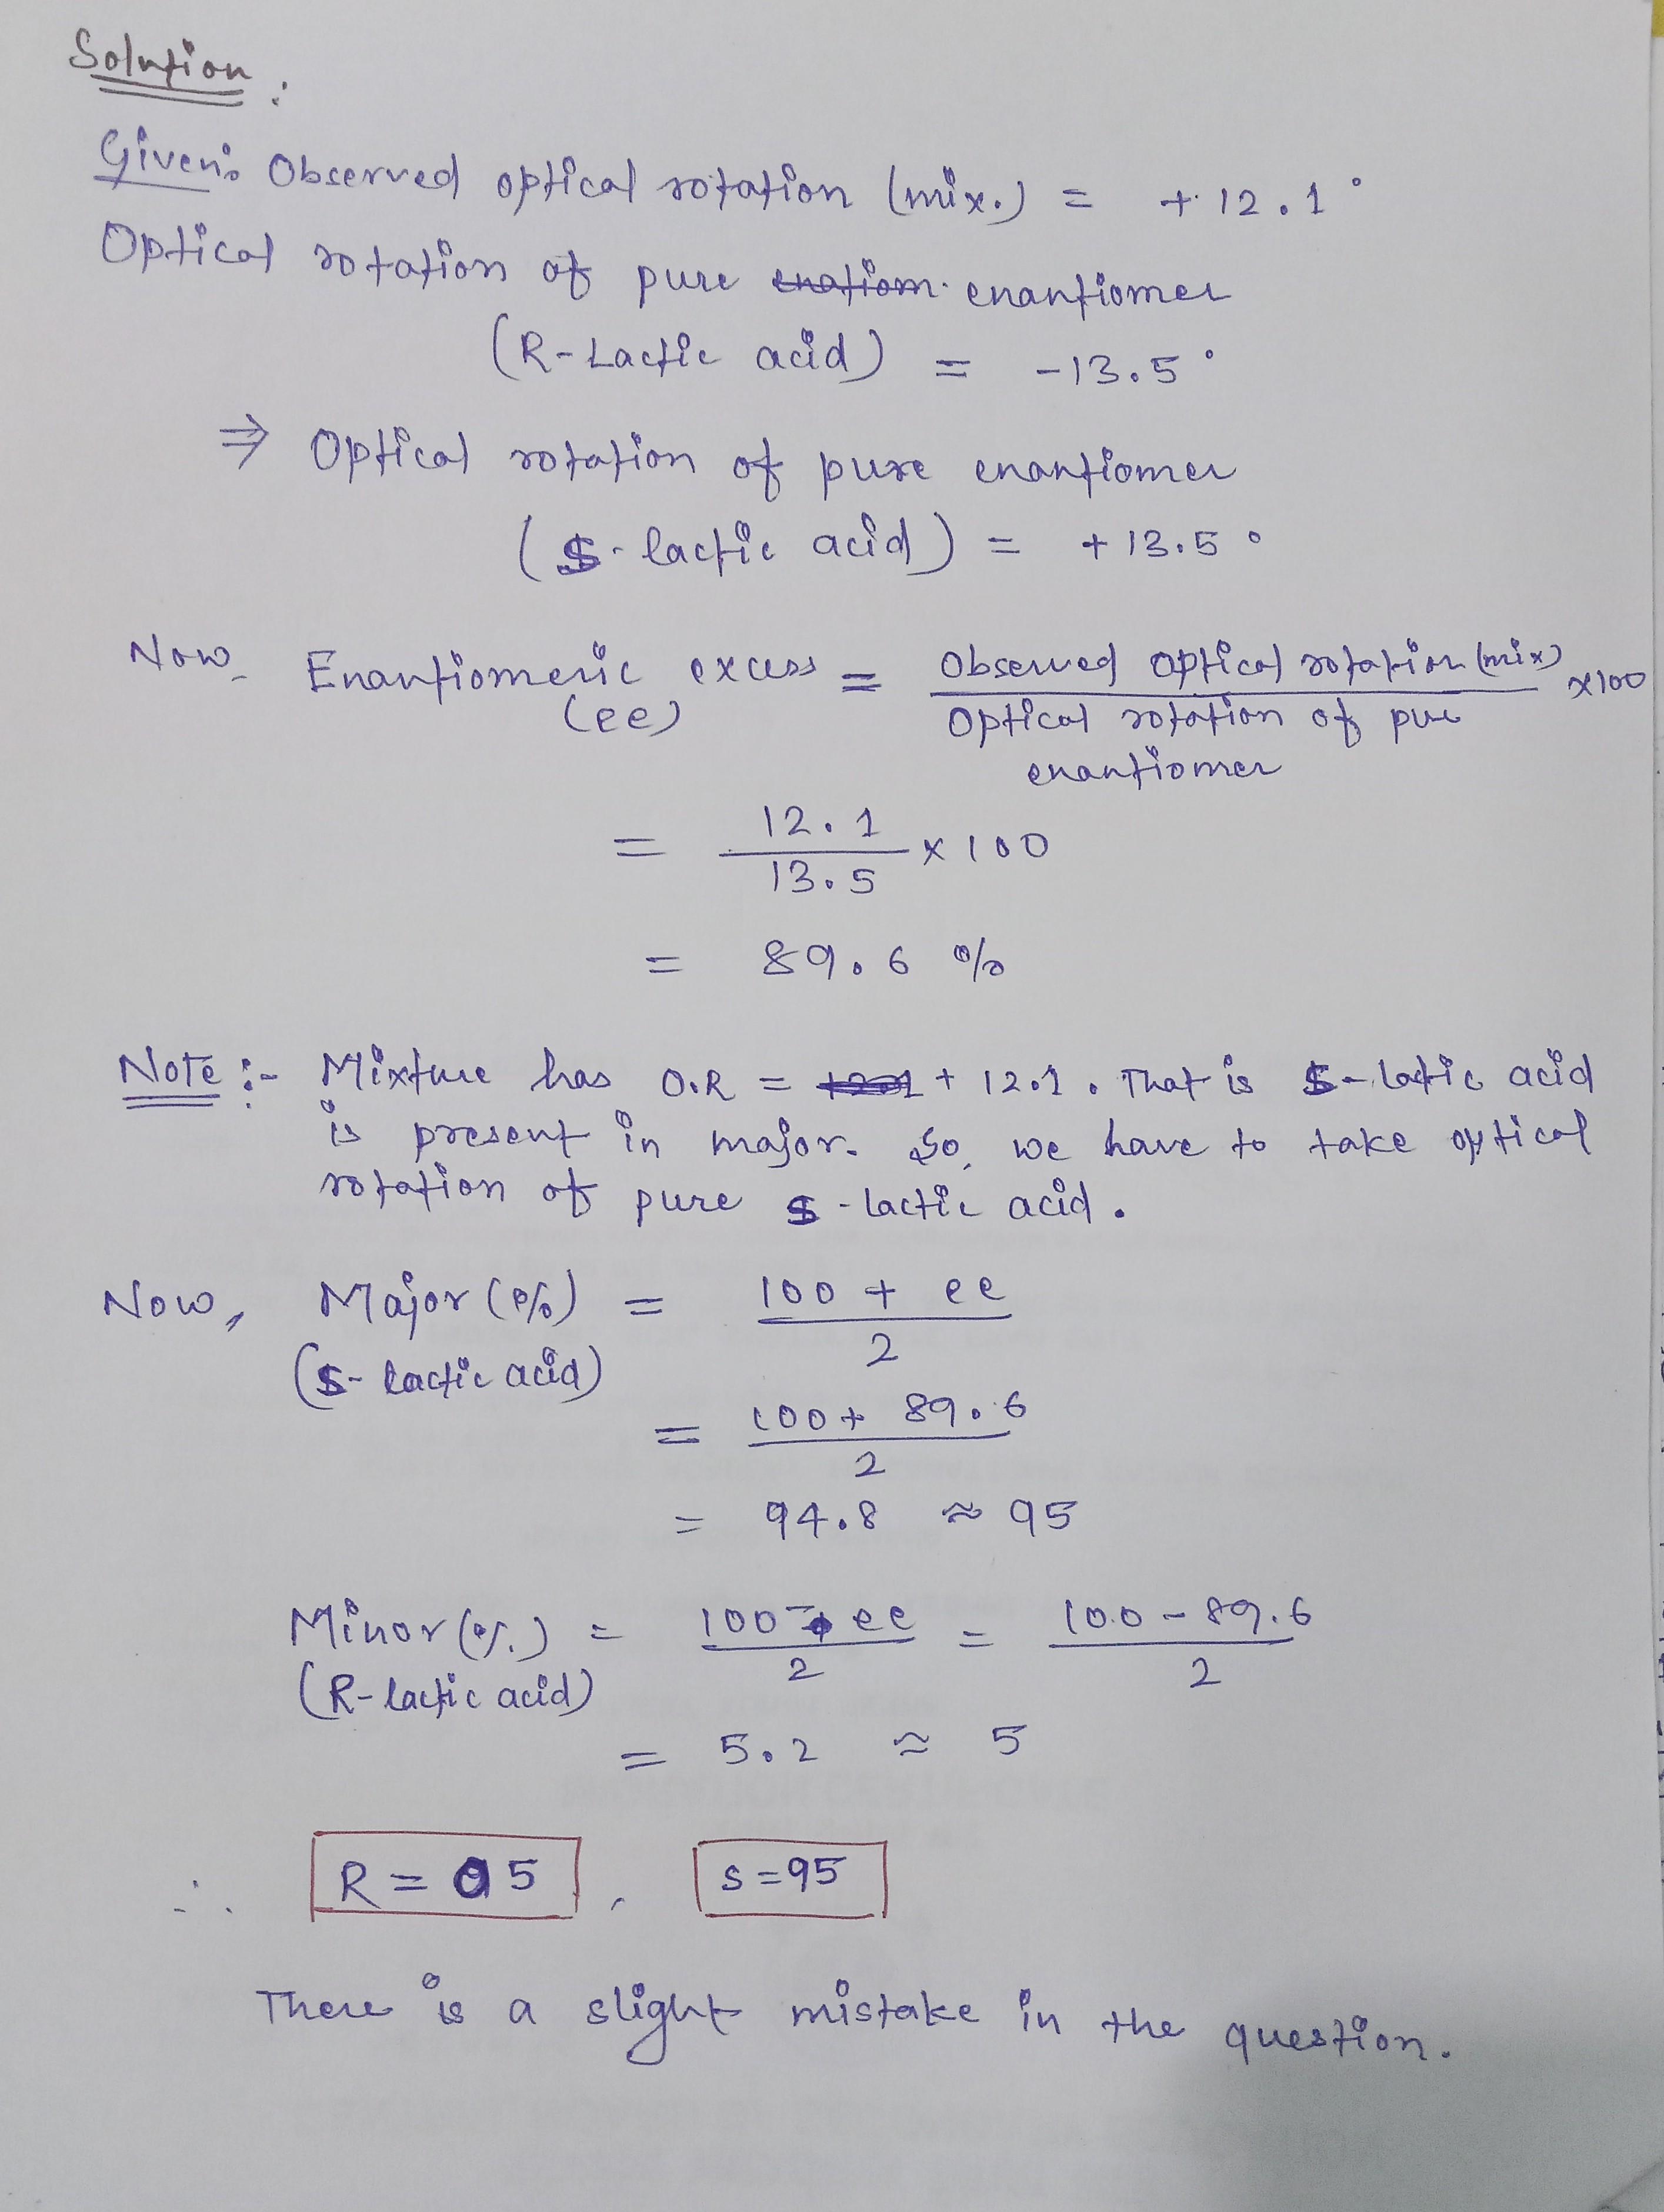 Solution :
Given: Observed optical rotation (mix.) = + 12.1°
Optical rotation of pure enatiom. enantiomer
(R-Lactic acid) = -13.5°
⇒ Optical rotation of pure enantiomer
(S-lactic acid) = +13.5°
Now, Enantiomeric excess (ee) = Observed optical rotation (mix) / Optical rotation of pure enantiomer x100
= 12.1 / 13.5 x 100
= 89.6 %
Note :- Mixture has O.R = +12.1 + 12.1. That is S-lactic acid
is present in major. So, we have to take optical
rotation of pure S-lactic acid.
Now, Major (%) = 100 + ee / 2
(S-lactic acid)
= 100 + 89.6 / 2
= 94.8 ≈ 95
Minor (%) = 100 - ee / 2 = 100 - 89.6 / 2
(R-lactic acid)
= 5.2 ≈ 5
∴ R = 05 , S = 95
There is a slight mistake in the question.